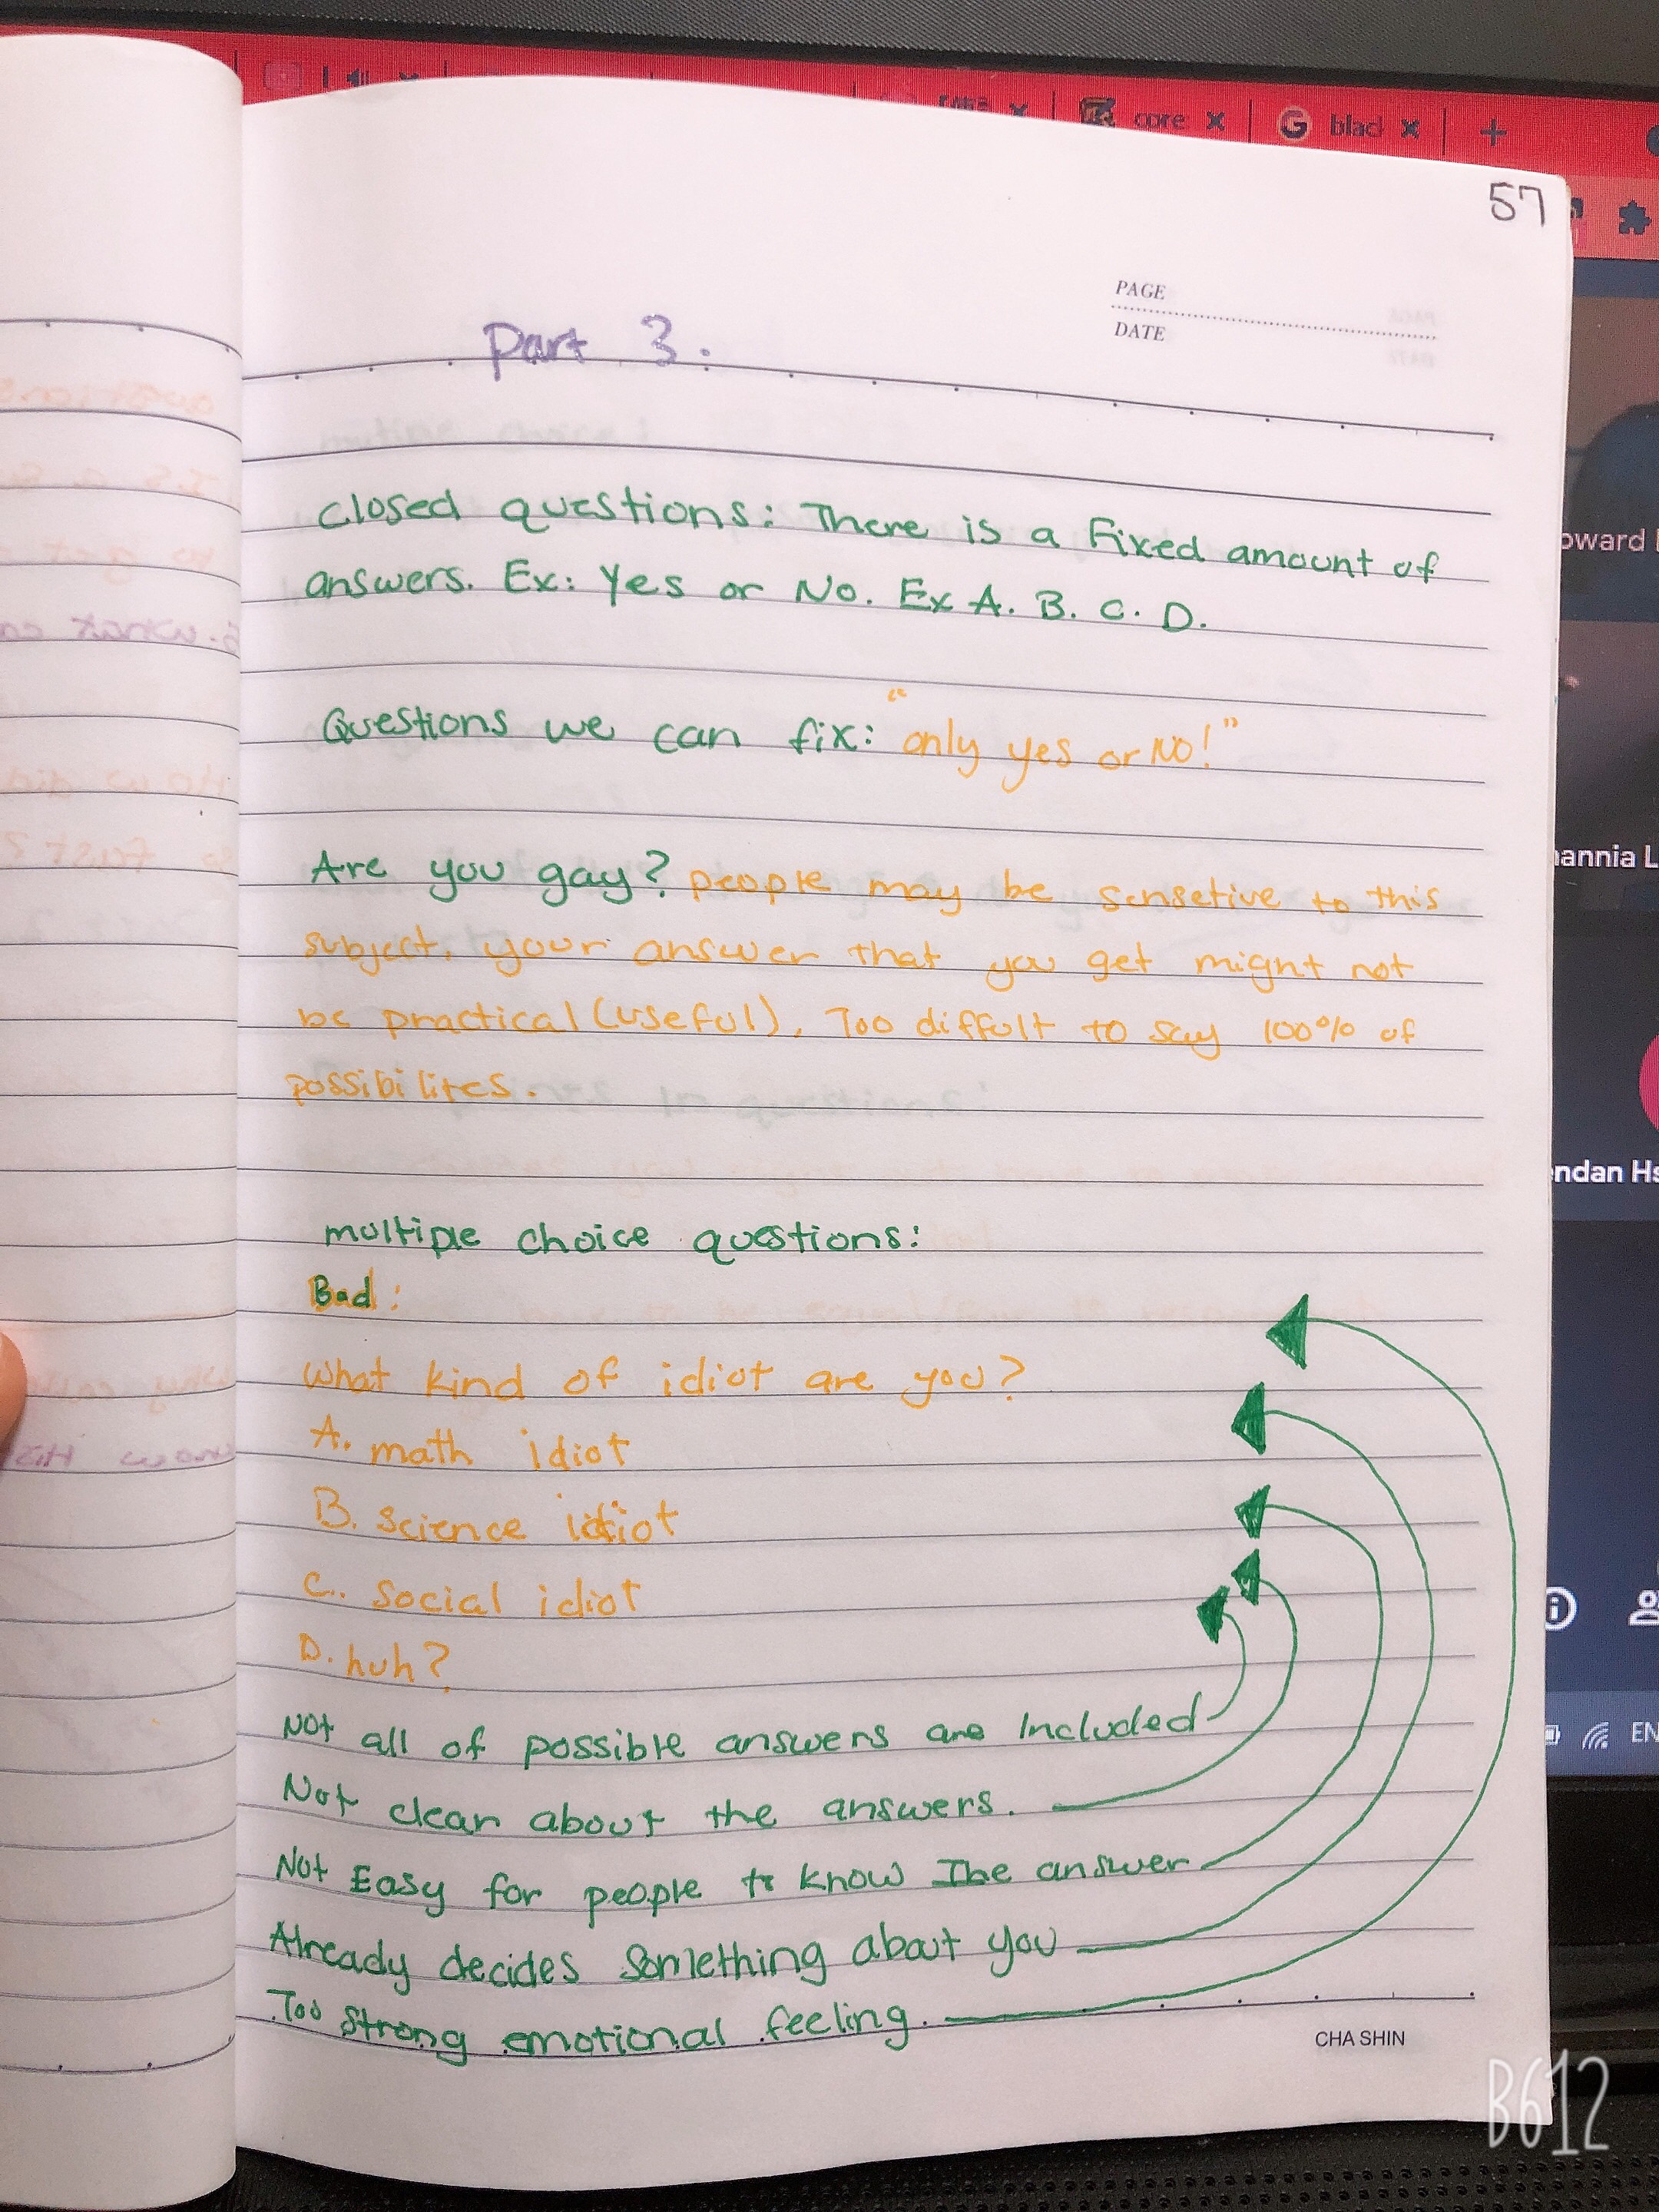 core
blad
57
PAGE
DATE
Part 3.
Closed questions: There is a fixed amount of
answers. Ex: Yes or No. Ex A. B. C. D.
Questions we can fix: "only yes or No!"
Are you gay? people may be sensetive to this
subject. your answer that you get might not
be practical (useful). Too diffult to say 100% of
possibilites.
multiple choice questions:
Bad:
What kind of idiot are you?
A. math idiot
B. science idiot
C. social idiot
D. huh?
Not all of possible answers are Included
Not clear about the answers.
Not Easy for people to know The answer
Already decides Something about you
Too Strong emotional feeling.
CHA SHIN
oward
annia L
ndan Hs
EN
B612